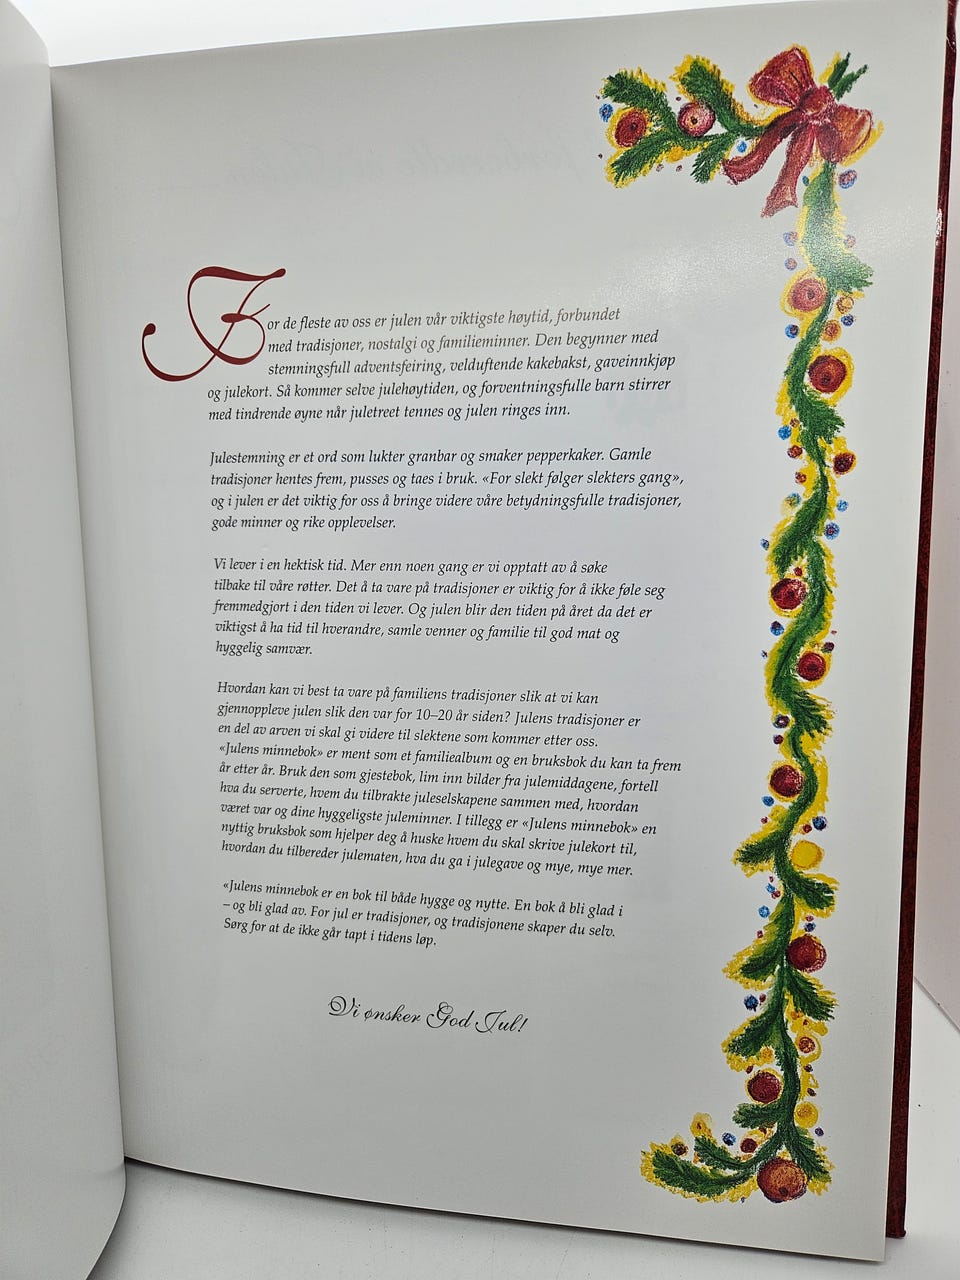 For de fleste av oss er julen vår viktigste høytid, forbundet
med tradisjoner, nostalgi og familieminner. Den begynner med
stemningsfull adventsfeiring, velduftende kakebakst, gaveinnkjøp
og julekort. Så kommer selve julehøytiden, og forventningsfulle barn stirrer
med tindrende øyne når juletreet tennes og julen ringes inn.
Julestemning er et ord som lukter granbar og smaker pepperkaker. Gamle
tradisjoner hentes frem, pusses og taes i bruk. «For slekt følger slekters gang»,
og i julen er det viktig for oss å bringe videre våre betydningsfulle tradisjoner,
gode minner og rike opplevelser.
Vi lever i en hektisk tid. Mer enn noen gang er vi opptatt av å søke
tilbake til våre røtter. Det å ta vare på tradisjoner er viktig for å ikke føle seg
fremmedgjort i den tiden vi lever. Og julen blir den tiden på året da det er
viktigst å ha tid til hverandre, samle venner og familie til god mat og
hyggelig samvær.
Hvordan kan vi best ta vare på familiens tradisjoner slik at vi kan
gjennoppleve julen slik den var for 10–20 år siden? Julens tradisjoner er
en del av arven vi skal gi videre til slektene som kommer etter oss.
«Julens minnebok» er ment som et familiealbum og en bruksbok du kan ta frem
år etter år. Bruk den som gjestebok, lim inn bilder fra julemiddagene, fortell
hva du serverte, hvem du tilbrakte juleselskapene sammen med, hvordan
været var og dine hyggeligste juleminner. I tillegg er «Julens minnebok» en
nyttig bruksbok som hjelper deg å huske hvem du skal skrive julekort til,
hvordan du tilbereder julematen, hva du ga i julegave og mye, mye mer.
«Julens minnebok er en bok til både hygge og nytte. En bok å bli glad i
– og bli glad av. For jul er tradisjoner, og tradisjonene skaper du selv.
Sørg for at de ikke går tapt i tidens løp.
Vi ønsker God Jul!